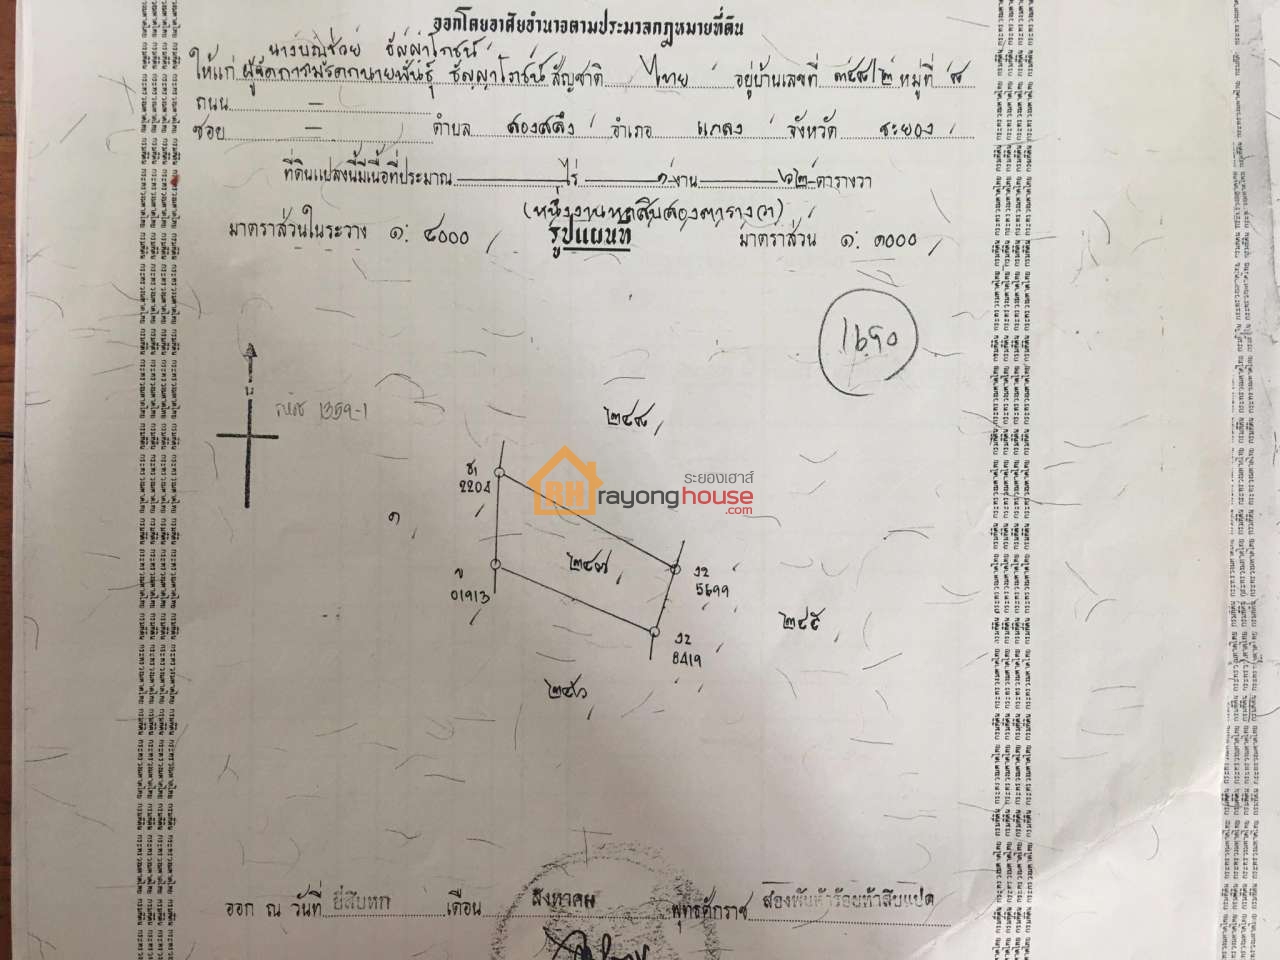 ออกโดยอาศัยอำนาจตามประมวลกฎหมายที่ดิน
นางบุญช่วย ธัญญาโภชน์
ให้แก่ ผู้จัดการมรดกนายพันธุ์ ธัญญาโภชน์ สัญชาติ ไทย อยู่บ้านเลขที่ ๓๔๘/๒ หมู่ที่ ๘
ถนน –
ซอย – ตำบล สองสลึง อำเภอ แกลง จังหวัด ระยอง
ที่ดินแปลงนี้มีเนื้อที่ประมาณ ไร่ ๑ งาน ๖๒ ตารางวา
(หนึ่งงานหกสิบสองตารางวา)
มาตราส่วนในระวาง ๑: ๔๐๐๐ รูปแผนที่ มาตราส่วน ๑: ๑๐๐๐
1690
น
1359-1
๒๔๘
ช1
2204
ระยองเฮาส์
RH rayonghouse
.com
๑
๒๔๗
ข
01913
ว2
5699
๒๔๕
ว2
8419
๒๔๖
ออก ณ วันที่ ยี่สิบหก เดือน สิงหาคม พุทธศักราช สองพันห้าร้อยห้าสิบแปด